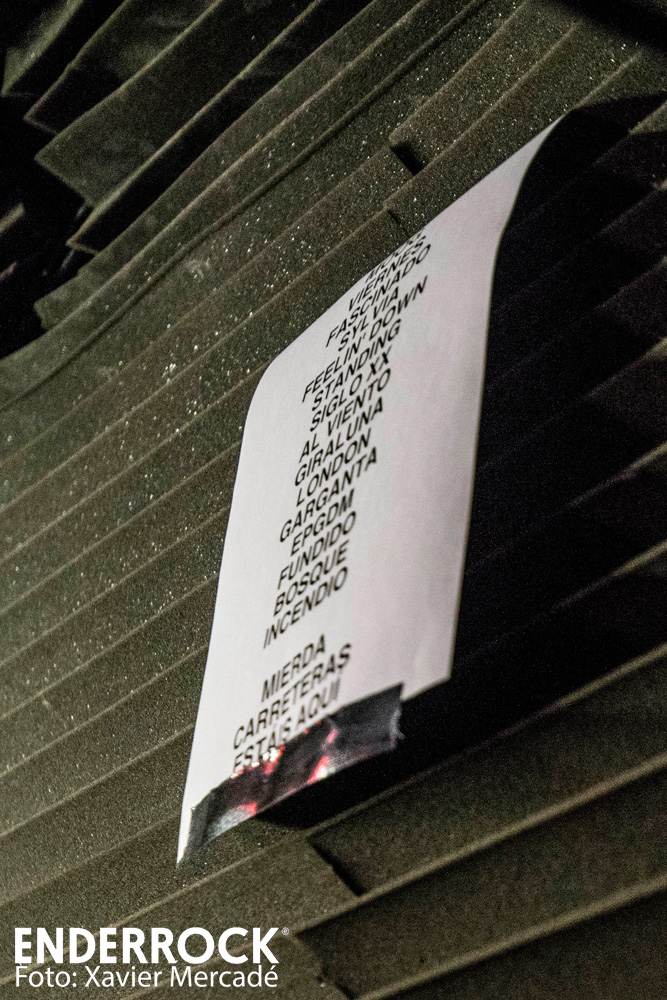 VIERNES
FASCINADO
SYLVIA
FEELIN' DOWN
STANDING
SIGLO XX
AL VIENTO
GIRALUNA
LONDON
GARGANTA
EPGDM
FUNDIDO
BOSQUE
INCENDIO
MIERDA
CARRETERAS
ESTÁIS AQUÍ
ENDERROCK®
Foto: Xavier Mercadé